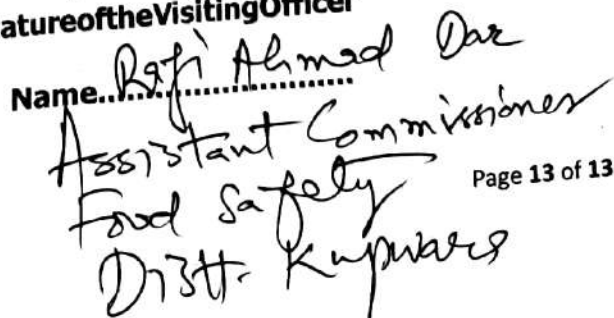 atureoftheVisitingOfficer
Name.....Rafi Ahmad Dar
Assistant Commissioner
Food Safety
Page 13 of 13
Distt. Kupwara